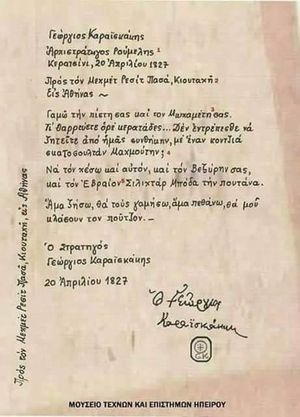 Γεώργιος Καραϊσκάκης
Αρχιστράτηγος Ρούμελης
Κερατσίνι, 20 Απριλίου 1827
Πρός τόν Μεχμέτ Ρεσίτ Πασά, Κιουταχή
Εἰς Ἀθήνας ~
Γαμῶ τήν πίστη σας καί τόν Μωχαμέτη σας.
Τί θαρρεύετε ὀρέ κερατάδες... Δέν ἐντρέπεσθε νά
ζητεῖτε ἀπό ἡμᾶς συνθήκην, μέ ἕναν κοντζιά
σκατοσουλτάν Μαχμούτην;
Νά τόν χέσω καί αὐτόν, καί τόν Βεζύρην σας,
καί τόν Ἑβραῖον Σιλιχτάρ Μπόδα τήν πουτάνα.
Ἄμα ζήσω, θά τούς γαμήσω, ἄμα πεθάνω, θά μοῦ
κλάσουν τόν ποῦτζον.~
Ὁ Στρατηγός
Γεώργιος Καραϊσκάκης
20 Ἀπριλίου 1827
Ὁ Γεώργιος
Καραϊσκάκης
ΓΚ
Πρός τόν Μεχμέτ Ρεσίτ Πασά, Κιουταχή, εἰς Ἀθήνας
ΜΟΥΣΕΙΟ ΤΕΧΝΩΝ ΚΑΙ ΕΠΙΣΤΗΜΩΝ ΗΠΕΙΡΟΥ